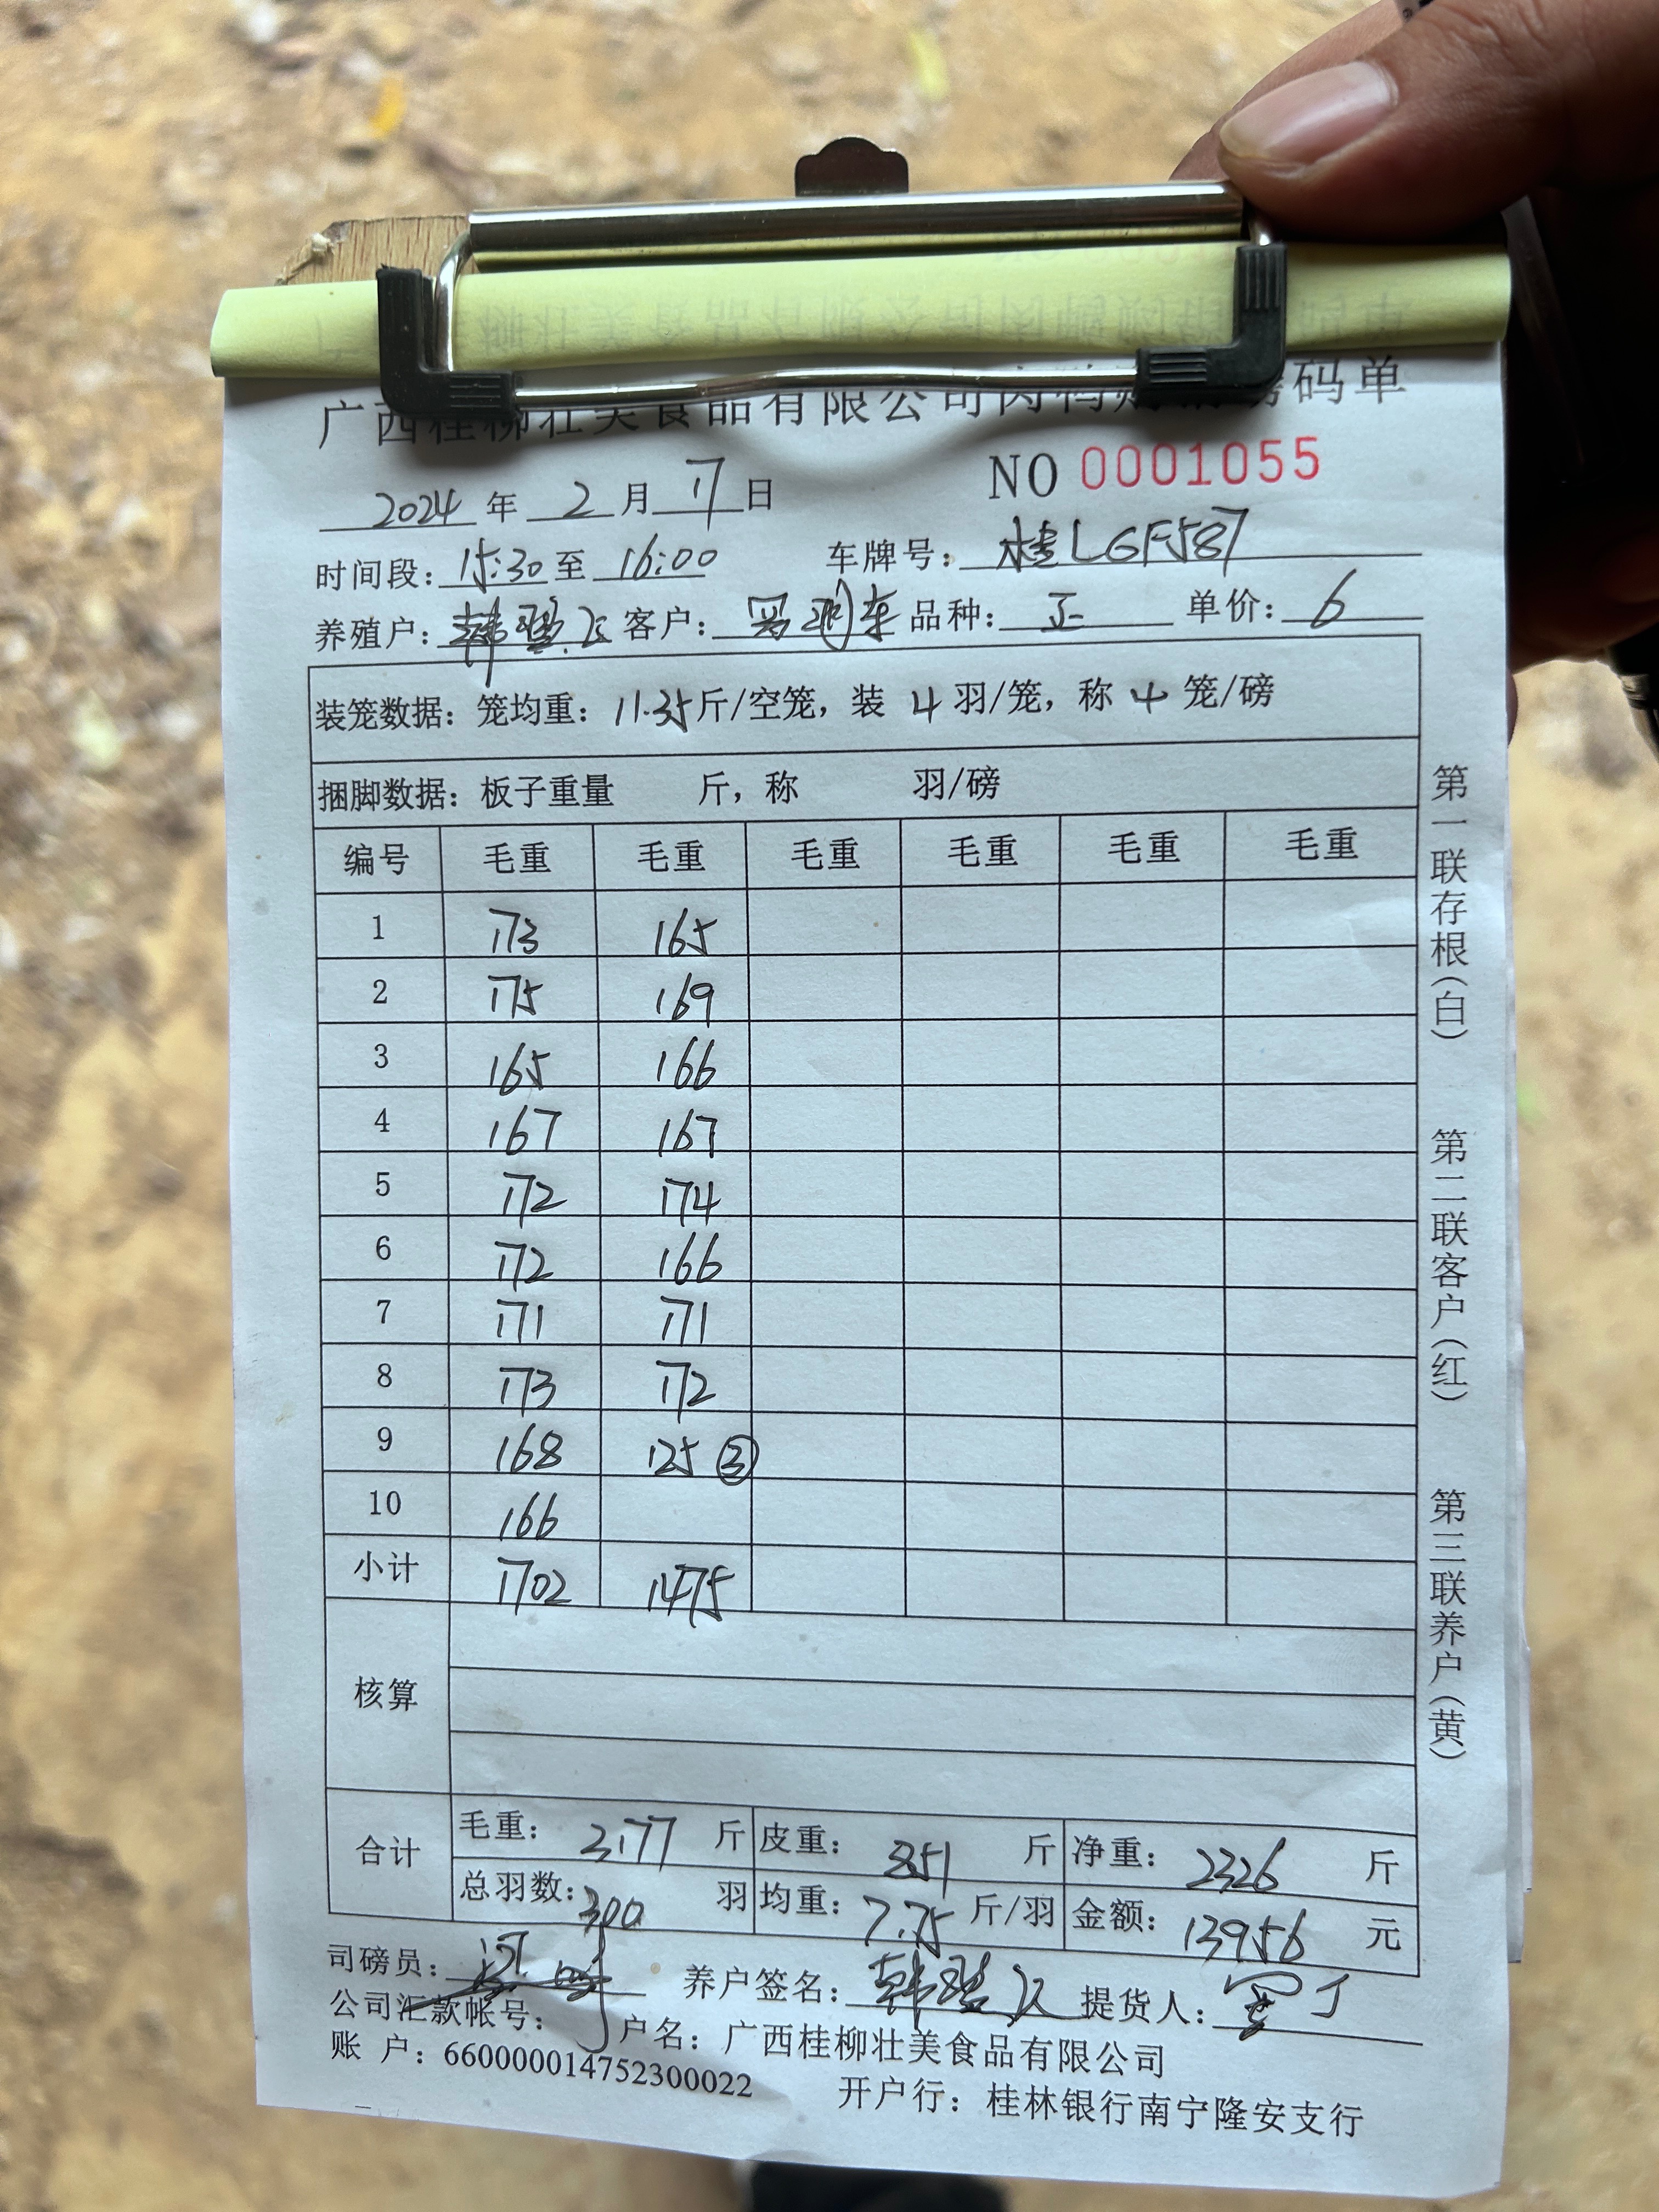 广西桂柳壮美食品有限公司肉鸭购销磅码单
NO 0001055
2024 年 2 月 17 日
时间段: 15:30 至 16:00 车牌号: 桂LGF587
养殖户: 韩 客户: 品种: 正 单价: 6
装笼数据: 笼均重: 11.35 斤/空笼, 装 4 羽/笼, 称 4 笼/磅
捆脚数据: 板子重量 斤, 称 羽/磅
编号 毛重 毛重 毛重 毛重 毛重 毛重
1 173 165
2 175 169
3 165 166
4 167 167
5 172 174
6 172 166
7 171 171
8 173 172
9 168 125 ③
10 166
小计 1702 1475
核算
合计 毛重: 3177 斤 皮重: 851 斤 净重: 2326 斤
总羽数: 300 羽 均重: 7.75 斤/羽 金额: 13956 元
司磅员: 养户签名: 韩 提货人:
公司汇款帐号: 户名: 广西桂柳壮美食品有限公司
账 户: 660000014752300022 开户行: 桂林银行南宁隆安支行
第一联存根(白) 第二联客户(红) 第三联养户(黄)